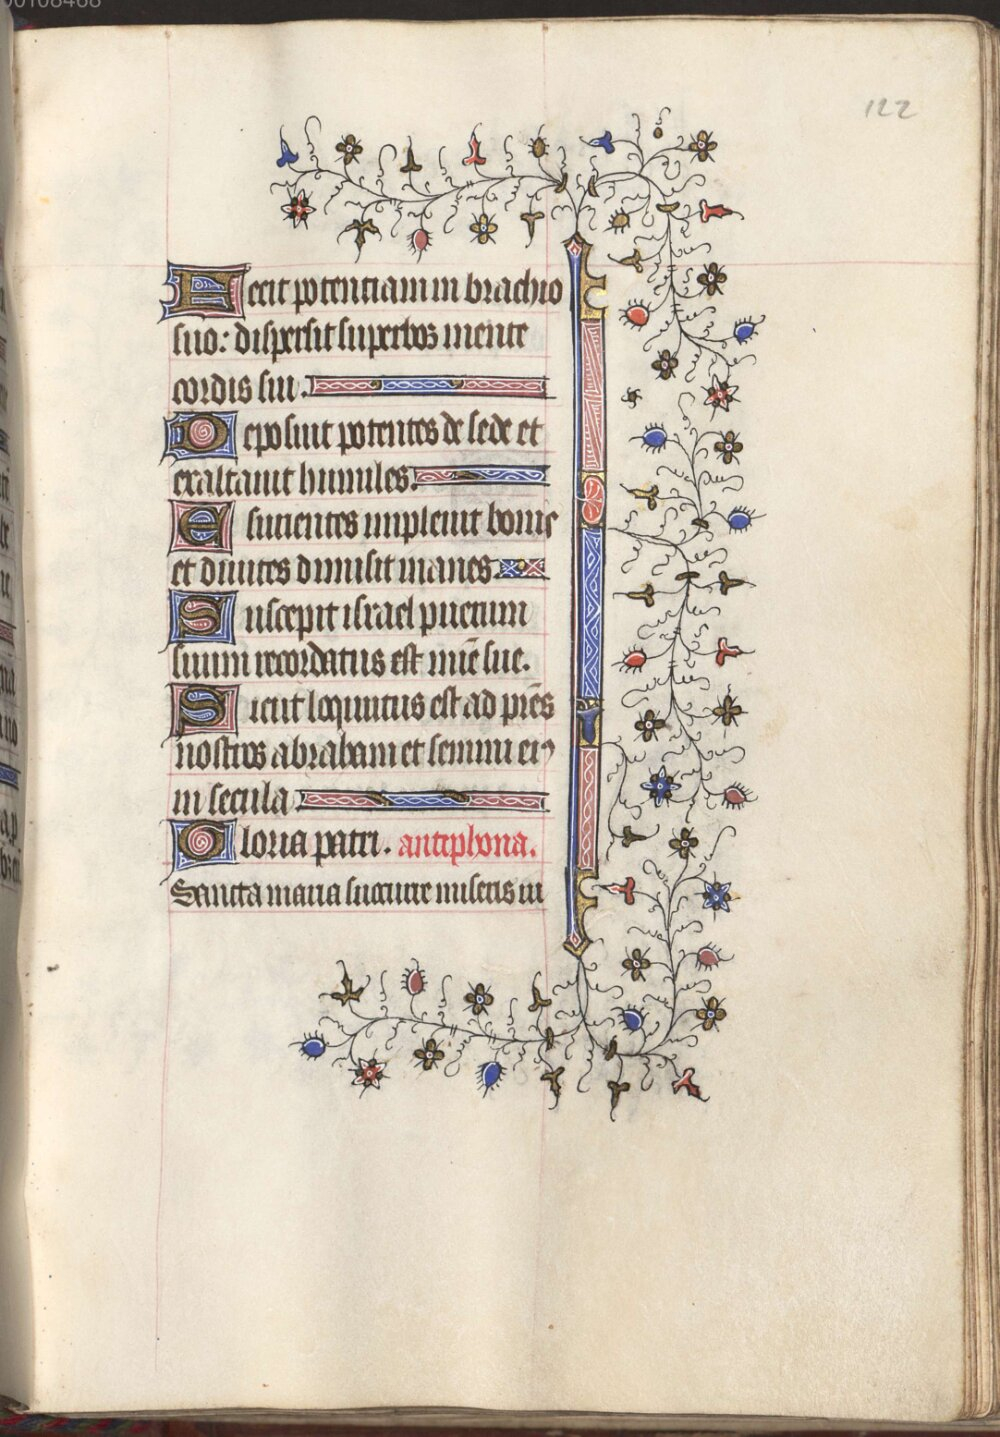 122
Fecit potentiam in brachio
suo: dispersit superbos mente
cordis sui.
Deposuit potentes de sede et
exaltauit humiles.
Esurientes impleuit bonis
et diuites dimisit inanes.
Suscepit israel puerum
suum recordatus est mīe sue.
Sicut locutus est ad pr̄es
nostros abraham et semini eiꝰ
in secula
Gloria patri. antiphona.
Sancta maria succurre miseris iu